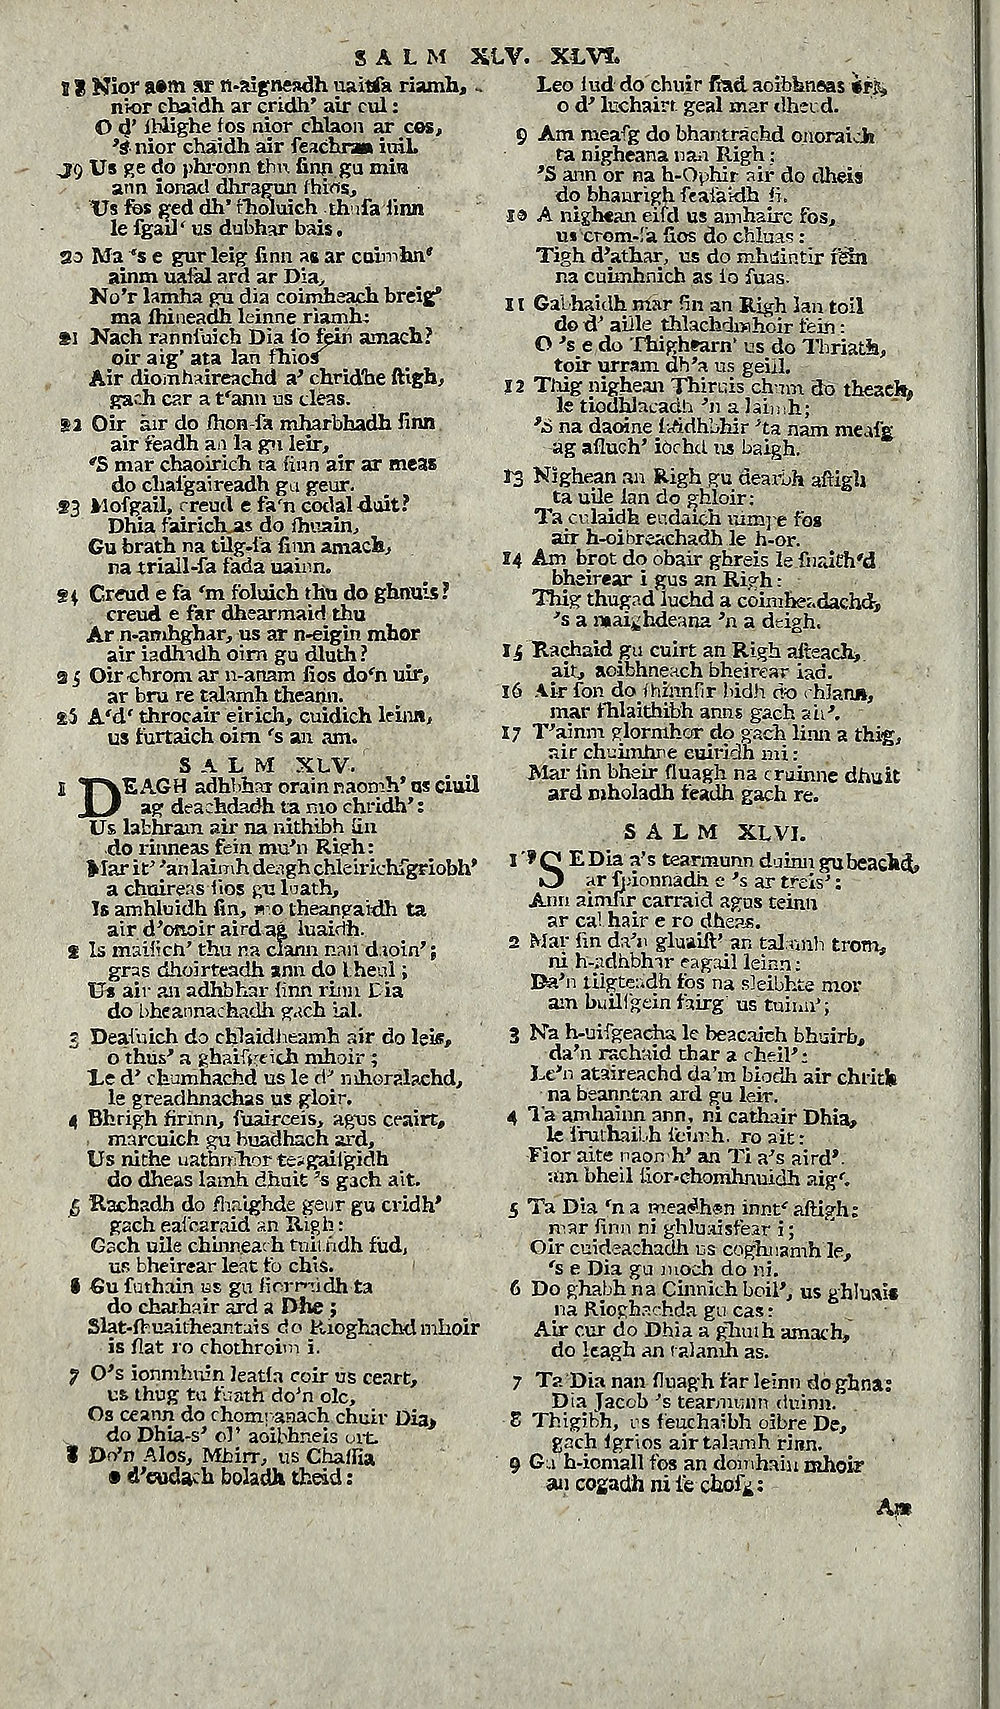 SALM XLV. XLVI.
18 Nior aom ar n-aigneadh uaitſa riamh,
nior chaidh ar cridh' air cul:
O d' ſhlighe fos nior chlaon ar cos,
's nior chaidh air ſeachran iuil.
19 Us ge do phronn thu ſinn gu min
ann ionad dhragun ſhios,
Us fos ged dh' fholuich thuſa ſinn
le ſgail' us dubhar bais.
20 Ma 's e gur leig ſinn as ar cuimhn'
ainm uaſal ard ar Dia,
No'r lamha gu dia coimheach breig'
ma ſhineadh leinne riamh:
21 Nach rannſuich Dia ſo fein amach?
oir aig' ata lan fhios
Air diomhaireachd a' chridhe ſtigh,
gach car a t'ann us cleas.
22 Oir air do ſhon-ſa mharbhadh ſinn
air feadh an la gu leir,
'S mar chaoirich ta ſinn air ar meas
do chaſgaireadh gu geur.
23 Moſgail, creud e fa'n codal duit?
Dhia fairich as do ſhuain,
Gu brath na tilg-ſa ſinn amach,
na triall-ſa fada uainn.
24 Creud e fa 'm foluich thu do ghnuis?
creud e far dhearmaid thu
Ar n-amhghar, us ar n-eigin mhor
air iadhadh oirn gu dluth?
25 Oir chrom ar n-anam ſios do'n uir,
ar bru re talamh theann.
26 A'd' throcair eirich, cuidich leinn,
us furtaich oirn 's an am.
SALM XLV.
1 DEAGH adhbhar orain naomh' us ciuil
ag deachdadh ta mo chridh':
Us labhram air na nithibh ſin
do rinneas fein mu'n Righ:
Mar it' 'an laimh deagh chleirich ſgriobh'
a chuireas ſios gu luath,
Is amhluidh ſin, mo theangaidh ta
air d'onoir aird ag luaidh.
2 Is maiſich' thu na clann nan daoin';
gras dhoirteadh ann do bheul;
Us air an adhbhar ſinn rinn Dia
do bheannachadh gach ial.
3 Deaſuich do chlaidheamh air do leis,
o thus' a ghaiſgeich mhoir;
Le d' chumhachd us le d' mhoralachd,
le greadhnachas us gloir.
4 Bhrigh firinn, ſuairceis, agus ceairt,
marcuich gu buadhach ard,
Us nithe uathmhor teagaiſgidh
do dheas lamh dhuit 's gach ait.
5 Rachadh do ſhaighde geur gu cridh'
gach eaſcaraid an Righ:
Gach uile chinneach tuitidh fud,
us bheirear leat fo chis.
6 Gu ſuthain us gu ſiorruidh ta
do chathair ard a Dhe;
Slat-ſhuaitheantais do Rioghachd mhoir
is ſlat ro chothroim i.
7 O's ionmhuin leatſa coir us ceart,
us thug tu fuath do'n olc,
Os ceann do chompanach chuir Dia,
do Dhia-s' ol' aoibhneis ort.
8 Do'n Alos, Mhirr, us Chaſſia
o d'eudach boladh theid:
Leo ſud do chuir ſiad aoibhneas ort,
o d' luchairt geal mar dheud.
9 Am meaſg do bhantrachd onoraich
ta nigheana nan Righ:
'S ann or na h-Ophir air do dheis
do bhanrigh ſeaſaidh ſi.
10 A nighean eiſd us amhairc fos,
us crom-ſa ſios do chluas:
Tigh d'athar, us do mhuintir fein
na cuimhnich as ſo ſuas.
11 Gabhaidh mar ſin an Righ lan toil
do d' aille thlachdmhoir fein:
O 's e do Thighearn' us do Thriath,
toir urram dh'a us geill.
12 Thig nighean Thiruis chum do theach,
le tiodhlacadh 'n a laimh;
'S na daoine ſaidhbhir 'ta nam meaſg
ag aſluch' iochd us baigh.
13 Nighean an Righ gu dearbh aſtigh
ta uile lan do ghloir:
Ta culaidh eudaich uimpe fos
air h-oibreachadh le h-or.
14 Am brot do obair ghreis le ſnaith'd
bheirear i gus an Righ:
Thig thugad luchd a coimheadachd,
's a maighdeana 'n a deigh.
15 Rachaid gu cuirt an Righ aſteach,
ait, aoibhneach bheirear iad.
16 Air ſon do ſhinnſir bidh do chlann,
mar fhlaithibh anns gach ait'.
17 T'ainm glormhor do gach linn a thig,
air chuimhne cuiridh mi:
Mar ſin bheir ſluagh na cruinne dhuit
ard mholadh feadh gach re.
SALM XLVI.
1 'SE Dia a's tearmunn duinn gu beachd,
ar ſpionnadh e 's ar treis':
Ann aimſir carraid agus teinn
ar cabhair e ro dheas.
2 Mar ſin da'n gluaiſt' an talamh trom,
ni h-adhbhar eagail leinn:
Da'n tilgteadh fos na sleibhte mor
am builſgein fairg' us tuinn';
3 Na h-uiſgeacha le beacaich bhuirb,
da'n rachaid thar a cheil':
Le'n ataireachd da'm biodh air chrith
na beanntan ard gu leir.
4 Ta amhainn ann, ni cathair Dhia,
le ſruthaibh ſeimh, ro ait:
Fior aite naomh' an Ti a's aird'.
am bheil ſior-chomhnuidh aig'.
5 Ta Dia 'n a meadhon innt' aſtigh:
mar ſinn ni ghluaisfear i;
Oir cuideachadh us coghnamh le,
's e Dia gu moch do ni.
6 Do ghabh na Cinnich boil', us ghluais
na Rioghachda gu cas:
Air cur do Dhia a ghuth amach,
do leagh an talamh as.
7 Ta Dia nan ſluagh far leinn do ghna:
Dia Jacob 's tearmunn duinn.
8 Thigibh, us feuchaibh oibre De,
gach ſgrios air talamh rinn.
9 Gu h-iomall fos an domhain mhoir
an cogadh ni ſe choſg:
Am